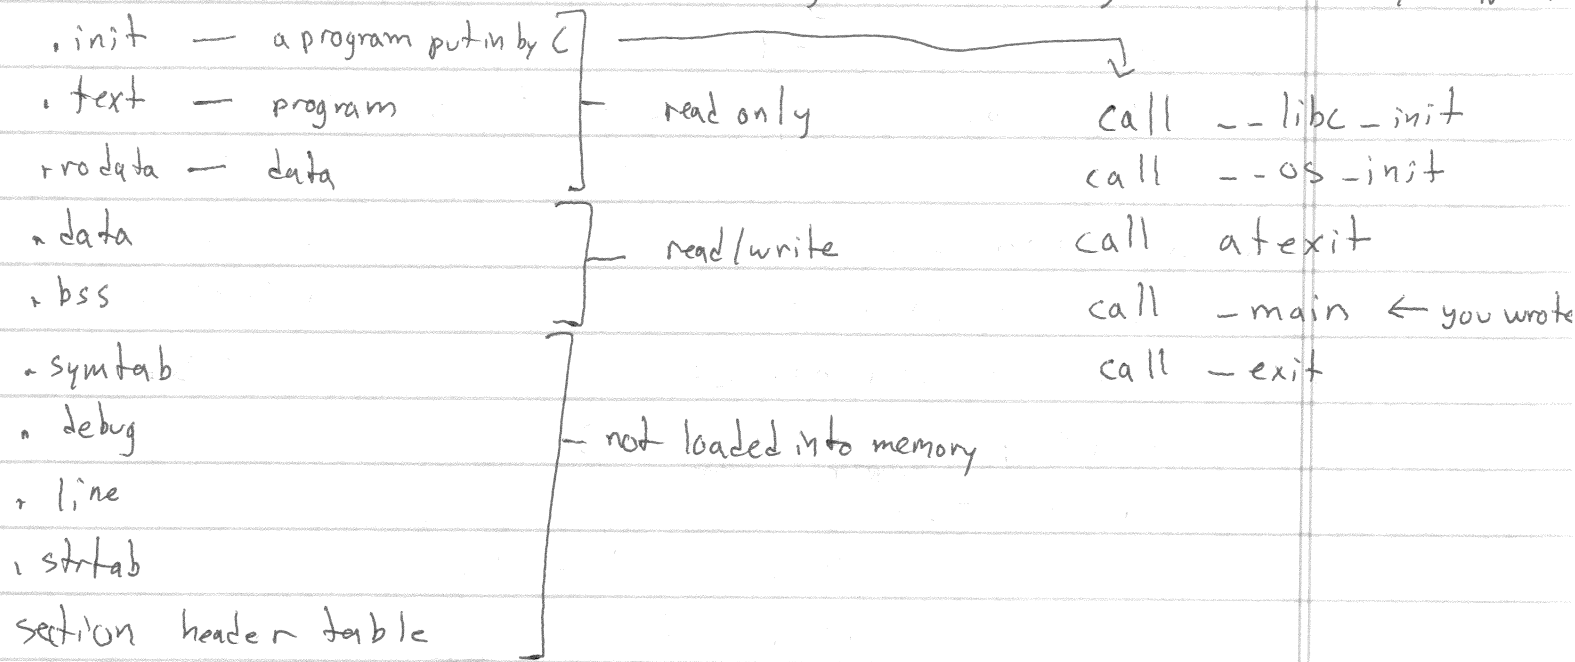 .init — a program put in by C
.text — program
.rodata — data
read only
.data
.bss
read/write
.symtab
.debug
.line
.strtab
section header table
not loaded into memory
call __libc_init
call __os_init
call atexit
call _main ← you wrote
call _exit